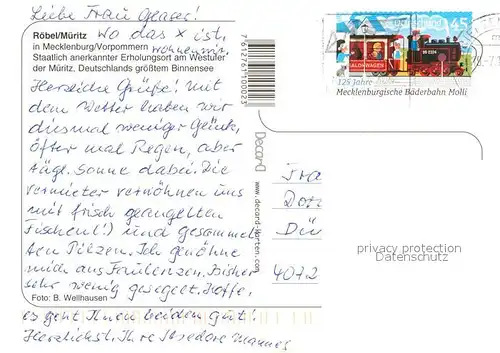 Liebe Frau
Röbel/Müritz wo das x ist,
in Mecklenburg/Vorpommern wohnen wir.
Staatlich anerkannter Erholungsort am Westufer
der Müritz, Deutschlands größtem Binnensee
Herzliche Grüße! Mit
dem Wetter haben wir
diesmal weniger Glück,
öfter mal Regen, aber
tägl. Sonne dabei. Die
Vermieter verwöhnen uns
mit frisch geangelten
Fischen(!) und gesammel-
ten Pilzen. Ich genöhne
mich ans Faulenzen. Bisher
sehr wenig gesegelt. Hoffe,
Foto: B. Wellhausen
es geht Ihnen beiden gut!
Herzlichst, Ihre Isedore Mannes
7612761100023
Decard
www.decard-karten.com
Deutschland 45
SALONWAGEN
99 2324
125 Jahre
Mecklenburgische Bäderbahn Molli
Fra
Dor
Dü
4072
privacy protection
Datenschutz